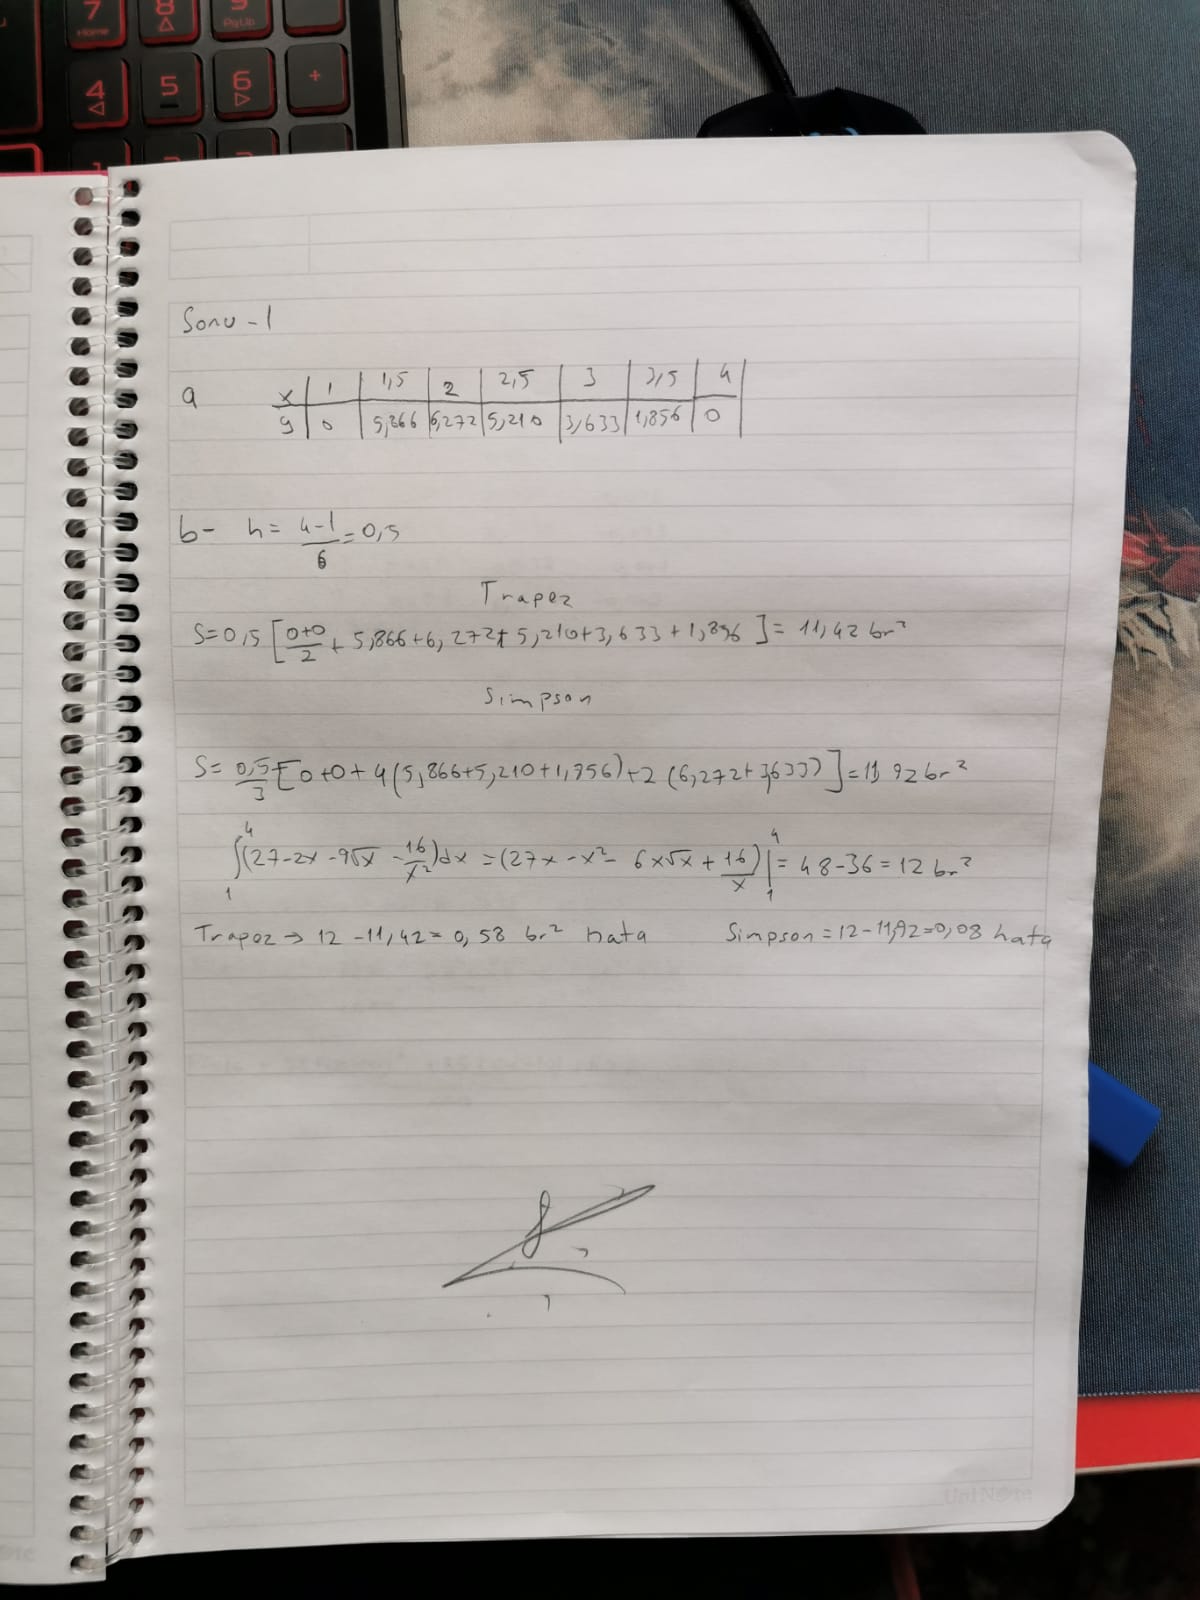 7 8 9
Home PgUp
4 5 6 +
Soru-1
a
x | 1 | 1,5 | 2 | 2,5 | 3 | 3,5 | 4
y | 0 | 5,866 | 6,272 | 5,210 | 3,633 | 1,856 | 0
b- h= 4-1/6 = 0,5
Trapez
S=0,5 [0+0/2 + 5,866+6,272+5,210+3,633+1,856]= 11,42 br²
Simpson
S= 0,5/3 [0+0+4(5,866+5,210+1,956)+2(6,272+3,633)]=11,92 br²
∫₁⁴(27-2x-9√x-16/x²)dx =(27x-x²-6x√x+16/x)|₁⁴= 48-36=12 br²
Trapez→12-11,42=0,58 br² hata Simpson=12-11,92=0,08 hata
UniNote